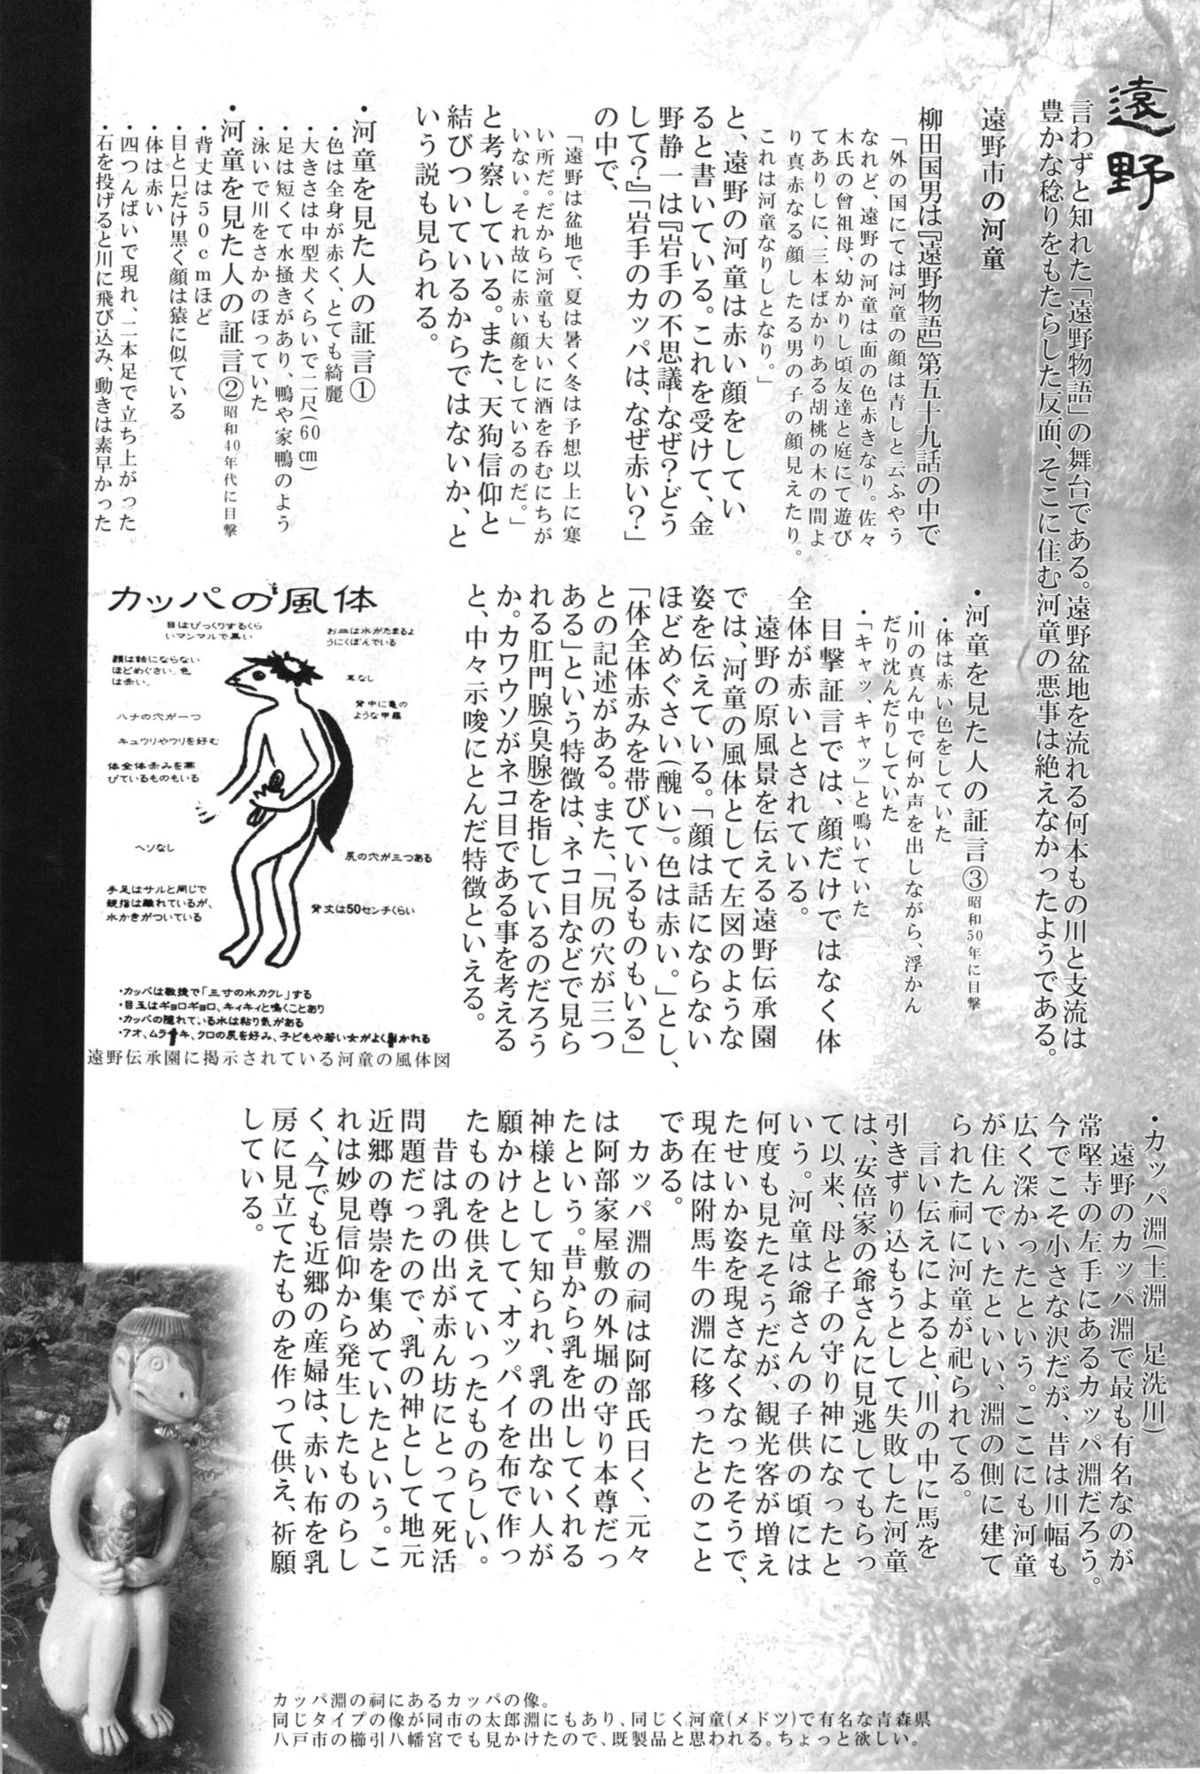 遠野
言わずと知れた「遠野物語」の舞台である。遠野盆地を流れる何本もの川と支流は
豊かな稔りをもたらした反面、そこに住む河童の悪事は絶えなかったようである。
遠野市の河童
柳田国男は『遠野物語』第五十九話の中で
「外の国にては河童の顔は青しと云ふやう
なれど、遠野の河童は面の色赤きなり。佐々
木氏の曾祖母、幼かりし頃友達と庭にて遊び
てありしに、三本ばかりある胡桃の木の間よ
り真赤なる顔したる男の子の顔見えたり。
これは河童なりしとなり。」
と、遠野の河童は赤い顔をしてい
ると書いている。これを受けて、金
野静一は『岩手の不思議−なぜ?どう
して?』「岩手のカッパは、なぜ赤い?」
の中で、
「遠野は盆地で、夏は暑く冬は予想以上に寒
い所だ。だから河童も大いに酒を呑むにちが
いない。それ故に赤い顔をしているのだ。」
と考察している。また、天狗信仰と
結びついているからではないか、と
いう説も見られる。
・河童を見た人の証言①
・色は全身が赤く、とても綺麗
・大きさは中型犬くらいで二尺(60㎝)
・足は短くて水掻きがあり、鴨や家鴨のよう
・泳いで川をさかのぼっていた
・河童を見た人の証言②昭和40年代に目撃
・背丈は50cmほど
・目と口だけ黒く顔は猿に似ている
・体は赤い
・四つんばいで現れ、二本足で立ち上がった
・石を投げると川に飛び込み、動きは素早かった
・河童を見た人の証言③昭和50年に目撃
・体は赤い色をしていた
・川の真ん中で何か声を出しながら、浮かん
だり沈んだりしていた
・「キャッ、キャッ」と鳴いていた
目撃証言では、顔だけではなく体
全体が赤いとされている。
遠野の原風景を伝える遠野伝承園
では、河童の風体として左図のような
姿を伝えている。「顔は話にならない
ほどめぐさい(醜い)。色は赤い。」とし、
「体全体赤みを帯びているものもいる」
との記述がある。また、「尻の穴が三つ
ある」という特徴は、ネコ目などで見ら
れる肛門腺(臭腺)を指しているのだろう
か。カワウソがネコ目である事を考える
と、中々示唆にとんだ特徴といえる。
カッパの風体
目はびっくりするくら
いマンマルで黒い
お皿は水がたまるよ
うにくぼんでいる
顔は話にならない
ほどめぐさい。色
は赤い。
耳なし
背中に亀の
ような甲羅
ハナの穴が一つ
キュウリやウリを好む
体全体赤みを帯
びているものもいる
ヘソなし
尻の穴が三つある
手足はサルと同じで
親指は離れているが、
水かきがついている
背丈は50センチくらい
・カッパは教授で「三寸の水カクレ」する
・目玉はギョロギョロ、キィキィと鳴くことあり
・カッパの隠れている水は粘り気がある
・アオ、ムラサキ、クロの尻を好み、子どもや若い女がよく引かれる
遠野伝承園に掲示されている河童の風体図
・カッパ淵(土淵 足洗川)
遠野のカッパ淵で最も有名なのが
常堅寺の左手にあるカッパ淵だろう。
今でこそ小さな沢だが、昔は川幅も
広く深かったという。ここにも河童
が住んでいたといい、淵の側に建て
られた祠に河童が祀られてる。
言い伝えによると、川の中に馬を
引きずり込もうとして失敗した河童
は、安倍家の爺さんに見逃してもらっ
て以来、母と子の守り神になったと
いう。河童は爺さんの子供の頃には
何度も見たそうだが、観光客が増え
たせいか姿を現さなくなったそうで、
現在は附馬牛の淵に移ったとのこと
である。
カッパ淵の祠は阿部氏曰く、元々
は阿部家屋敷の外堀の守り本尊だっ
たという。昔から乳を出してくれる
神様として知られ、乳の出ない人が
願かけとして、オッパイを布で作っ
たものを供えていったものらしい。
昔は乳の出が赤ん坊にとって死活
問題だったので、乳の神として地元
近郷の尊崇を集めていたという。こ
れは妙見信仰から発生したものらし
く、今でも近郷の産婦は、赤い布を乳
房に見立てたものを作って供え、祈願
している。
カッパ淵の祠にあるカッパの像。
同じタイプの像が同市の太郎淵にもあり、同じく河童(メドツ)で有名な青森県
八戸市の櫛引八幡宮でも見かけたので、既製品と思われる。ちょっと欲しい。